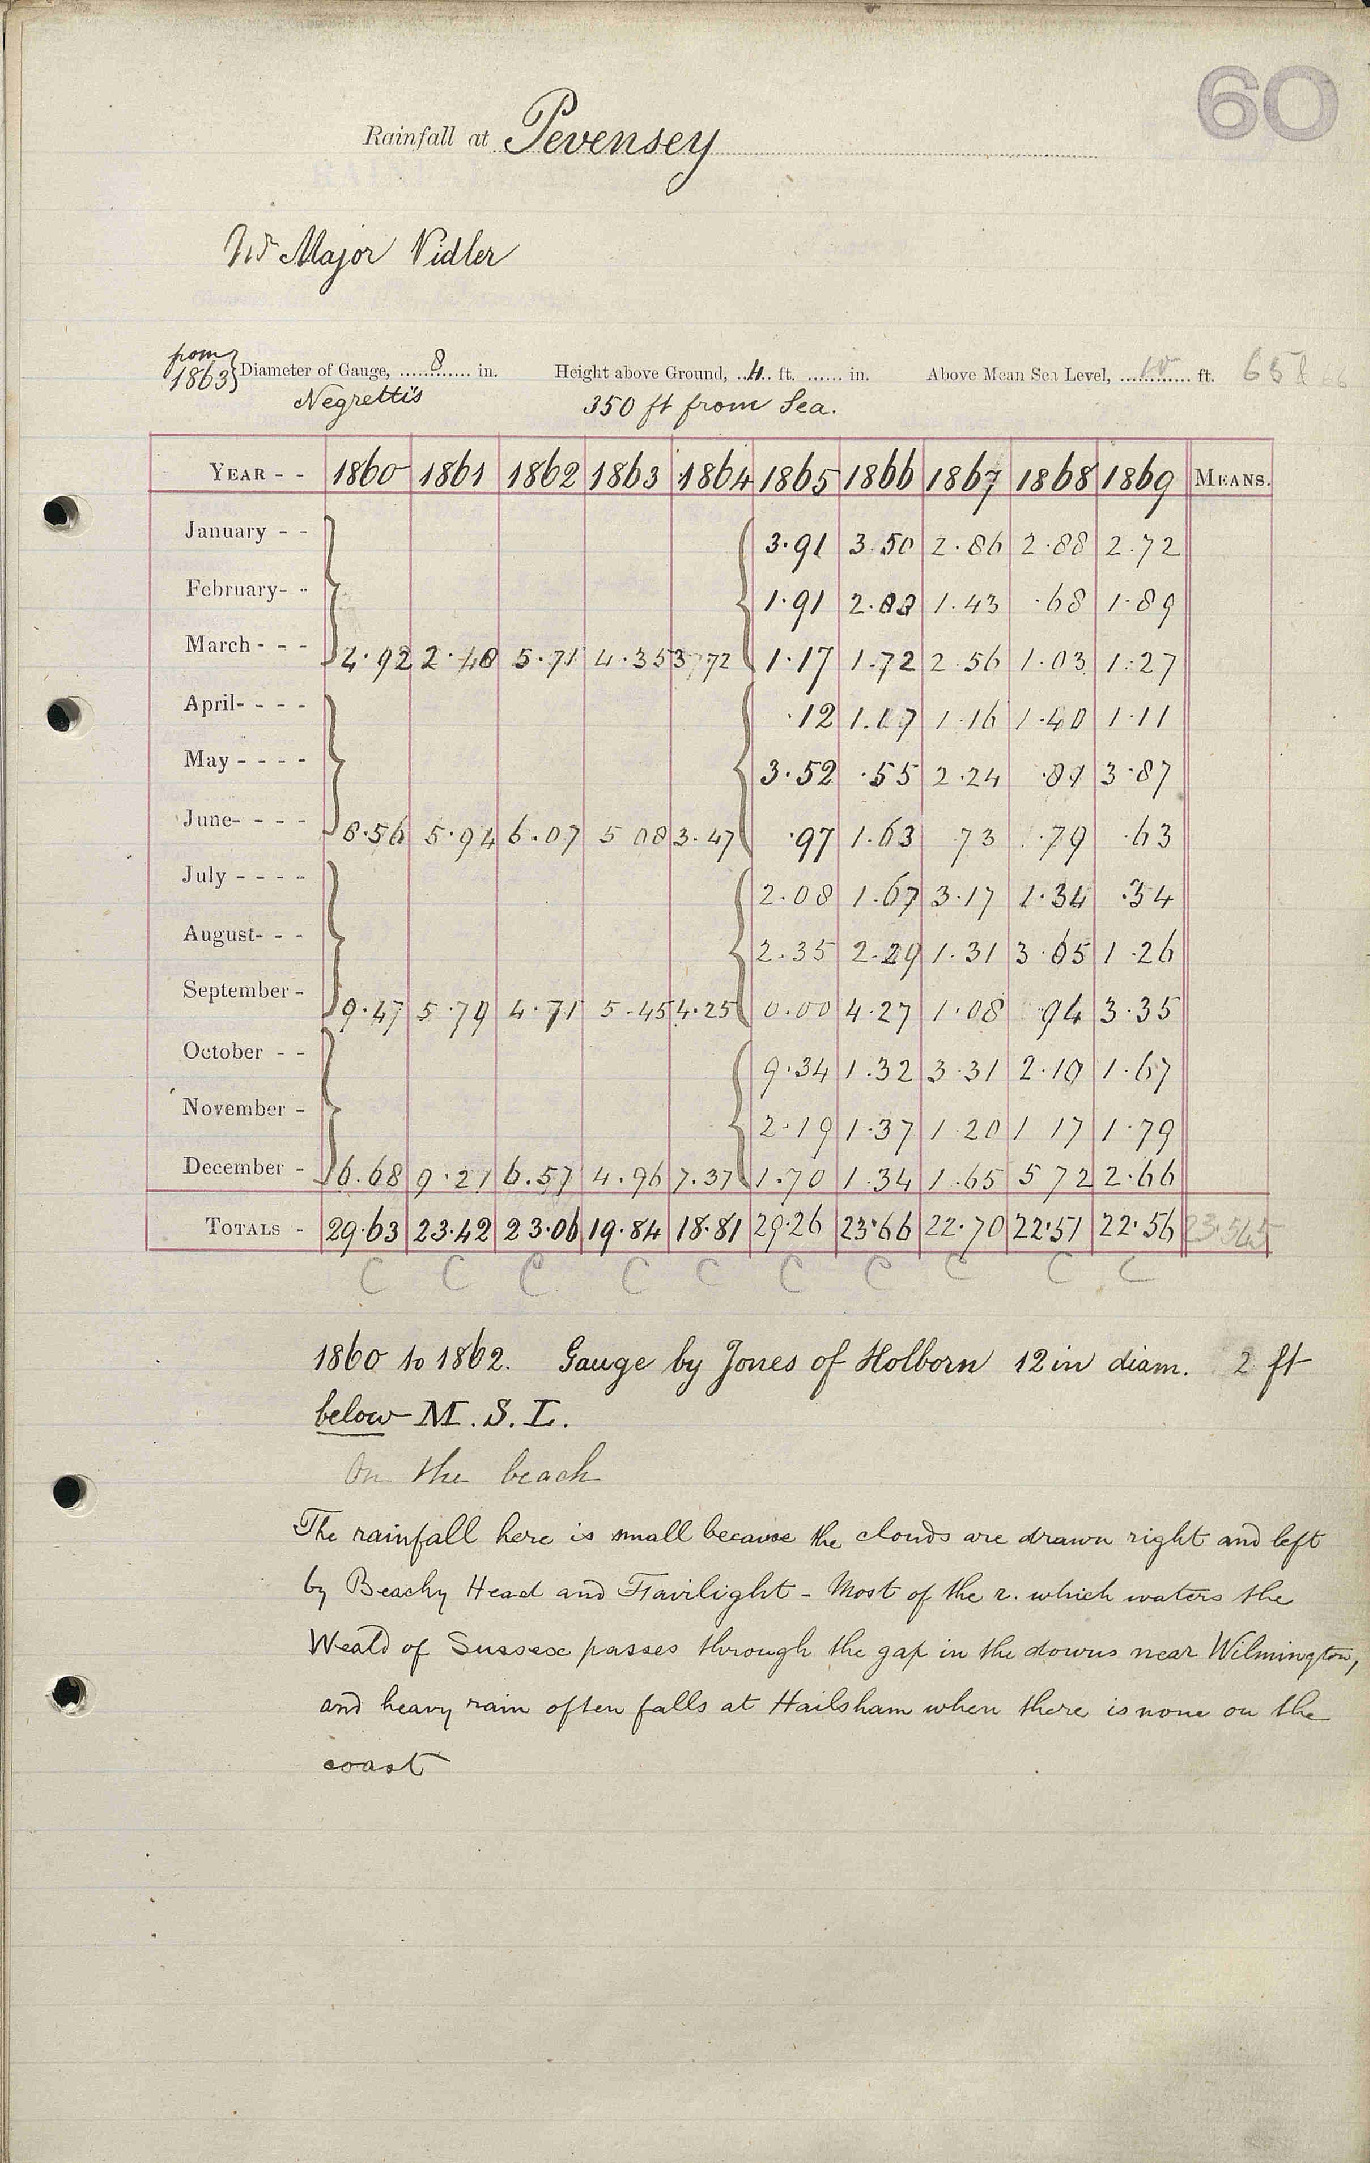 60
Rainfall at Pevensey
Mr Major Vidler
from 1863 } Diameter of Gauge, 8 in. Height above Ground, 4 ft. ...... in. Above Mean Sea Level, 10 ft.
Negretti's 350 ft from Sea.
YEAR - - 1860 1861 1862 1863 1864 1865 1866 1867 1868 1869 MEANS.
January - - 3.91 3.50 2.86 2.88 2.72
February- - 1.91 2.83 1.43 .68 1.89
March - - - 4.92 2.48 5.71 4.35 3.72 1.17 1.72 2.56 1.03 1.27
April- - - - .12 1.17 1.16 1.40 1.11
May - - - - 3.52 .55 2.24 .81 3.87
June- - - - 8.56 5.94 6.07 5.08 3.47 .97 1.63 .73 .79 .63
July - - - - 2.08 1.67 3.17 1.34 .34
August- - - 2.35 2.29 1.31 3.65 1.26
September - 9.47 5.79 4.71 5.45 4.25 0.00 4.27 1.08 .94 3.35
October - - 9.34 1.32 3.31 2.10 1.67
November - 2.19 1.37 1.20 1.17 1.79
December - 6.68 9.21 6.57 4.96 7.37 1.70 1.34 1.65 5.72 2.66
TOTALS - 29.63 23.42 23.06 19.84 18.81 29.26 23.66 22.70 22.51 22.56 23.545
C C C C C C C C C C
1860 to 1862. Gauge by Jones of Holborn 12 in diam. 2 ft
below M.S.L.
On the beach
The rainfall here is small because the clouds are drawn right and left
by Beachy Head and Fairlight - Most of the r. which waters the
Weald of Sussex passes through the gap in the downs near Wilmington,
and heavy rain often falls at Hailsham when there is none on the
coast